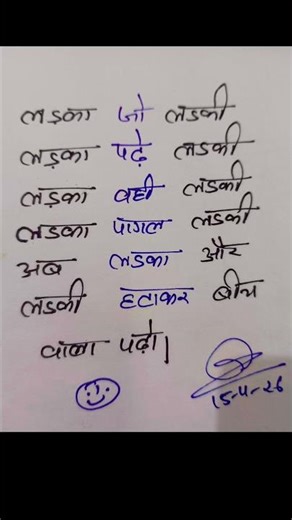 लड़का जो लडकी
लड़का पढ़े लडकी
लड़का वही लडकी
लडका पागल लडकी
अब लडका और
लडकी हटाकर बीच
वाला पढ़ो।
15-4-26